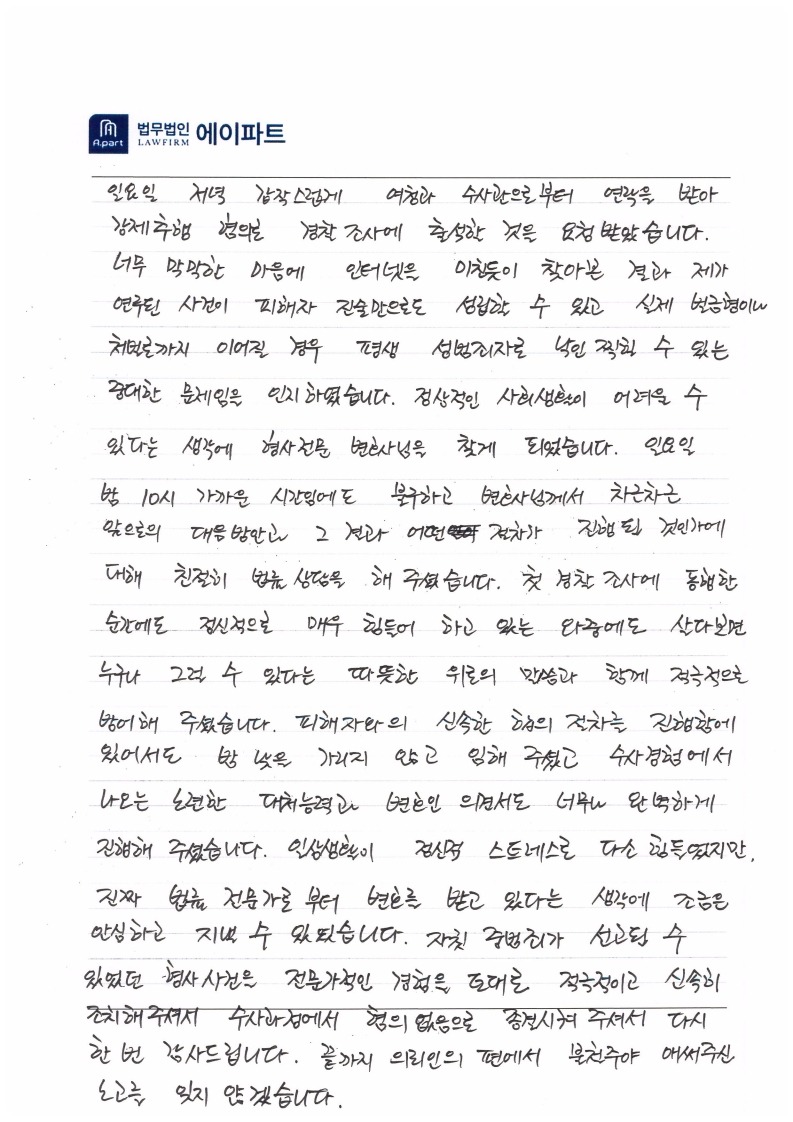 A.part 법무법인 LAWFIRM 에이파트
일요일 저녁 갑작스럽게 여청과 수사관으로부터 연락을 받아
강제추행 혐의로 경찰 조사에 출석한 것을 요청 받았습니다.
너무 막막한 마음에 인터넷을 미친듯이 찾아본 결과 제가
연루된 사건이 피해자 진술만으로도 성립할 수 있고 실제 벌금형이나
처벌로까지 이어질 경우 평생 성범죄자로 낙인 찍힐 수 있는
중대한 문제임을 인지하였습니다. 정상적인 사회생활이 어려울 수
있다는 생각에 형사전문 변호사님을 찾게 되었습니다. 일요일
밤 10시 가까운 시간임에도 불구하고 변호사님께서 차근차근
앞으로의 대응방안과 그 결과 어떤 절차가 진행될 것인가에
대해 친절히 법률 상담을 해 주셨습니다. 첫 경찰 조사에 동행한
순간에도 정신적으로 매우 힘들어 하고 있는 와중에도 살다보면
누구나 그럴 수 있다는 따뜻한 위로의 말씀과 함께 적극적으로
방어해 주셨습니다. 피해자와의 신속한 합의 절차를 진행함에
있어서도 밤 낮을 가리지 않고 임해 주셨고 수사경험에서
나오는 노련한 대처능력과 변호인 의견서도 너무나 완벽하게
진행해 주셨습니다. 일상생활이 정신적 스트레스로 다소 힘들었지만,
진짜 법률 전문가로 부터 변호를 받고 있다는 생각에 조금은
안심하고 지낼 수 있었습니다. 자칫 중범죄가 선고될 수
있었던 형사사건을 전문가적인 경험을 토대로 적극적이고 신속히
조치해주셔서 수사과정에서 혐의없음으로 종결시켜 주셔서 다시
한 번 감사드립니다. 끝까지 의뢰인의 편에서 불철주야 애써주신
노고를 잊지 않겠습니다.